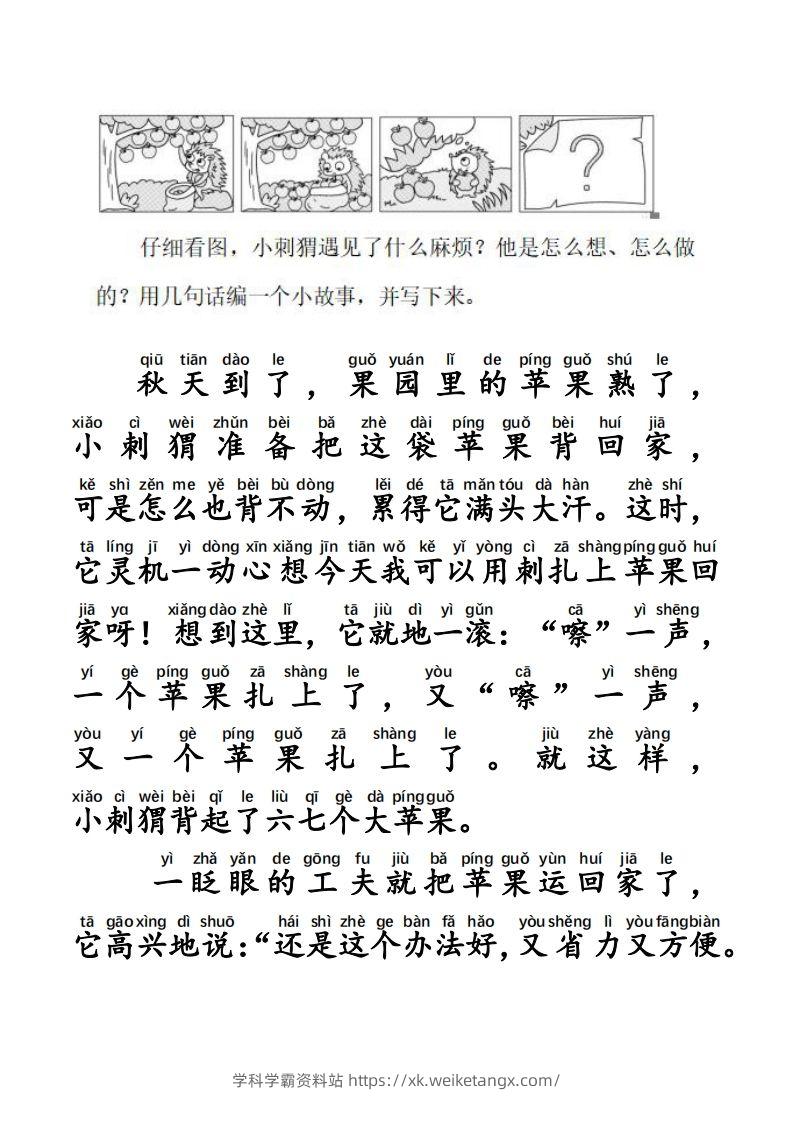 ?
仔细看图，小刺猬遇见了什么麻烦？他是怎么想、怎么做
的？用几句话编一个小故事，并写下来。
qiū tiān dào le guǒ yuán lǐ de píng guǒ shú le
秋天到了，果园里的苹果熟了，
xiǎo cì wèi zhǔn bèi bǎ zhè dài píng guǒ bèi huí jiā
小刺猬准备把这袋苹果背回家，
kě shì zěn me yě bèi bù dòng lěi dé tā mǎn tóu dà hàn zhè shí
可是怎么也背不动，累得它满头大汗。这时，
tā líng jī yì dòng xīn xiǎng jīn tiān wǒ kě yǐ yòng cì zā shàng píng guǒ huí
它灵机一动心想今天我可以用刺扎上苹果回
jiā ya xiǎng dào zhè lǐ tā jiù dì yì gǔn cā yì shēng
家呀！想到这里，它就地一滚：“嚓”一声，
yí gè píng guǒ zā shàng le yòu cā yì shēng
一个苹果扎上了，又“嚓”一声，
yòu yí gè píng guǒ zā shàng le jiù zhè yàng
又一个苹果扎上了。就这样，
xiǎo cì wèi bèi qǐ le liù qī gè dà píng guǒ
小刺猬背起了六七个大苹果。
yì zhǎ yǎn de gōng fu jiù bǎ píng guǒ yùn huí jiā le
一眨眼的工夫就把苹果运回家了，
tā gāo xìng dì shuō hái shì zhè ge bàn fǎ hǎo yòu shěng lì yòu fāng biàn
它高兴地说：“还是这个办法好，又省力又方便。
学科学霸资料站 https://xk.weiketangx.com/